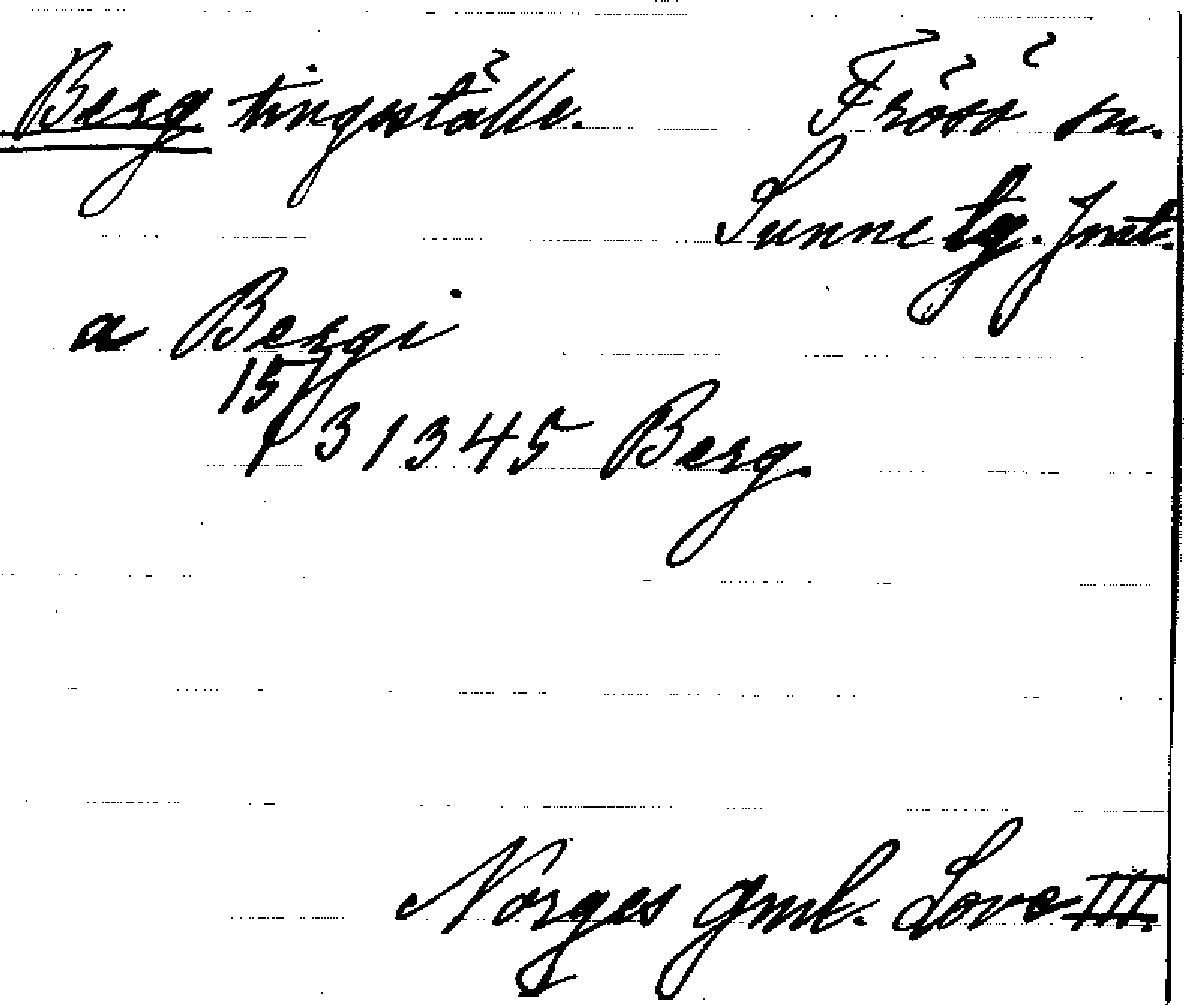 Berg tingställe. Frösö sn.
Sunne tg. Jmt.
a Bergi
15/1 31345 Berg.
Norges gml. Love III.